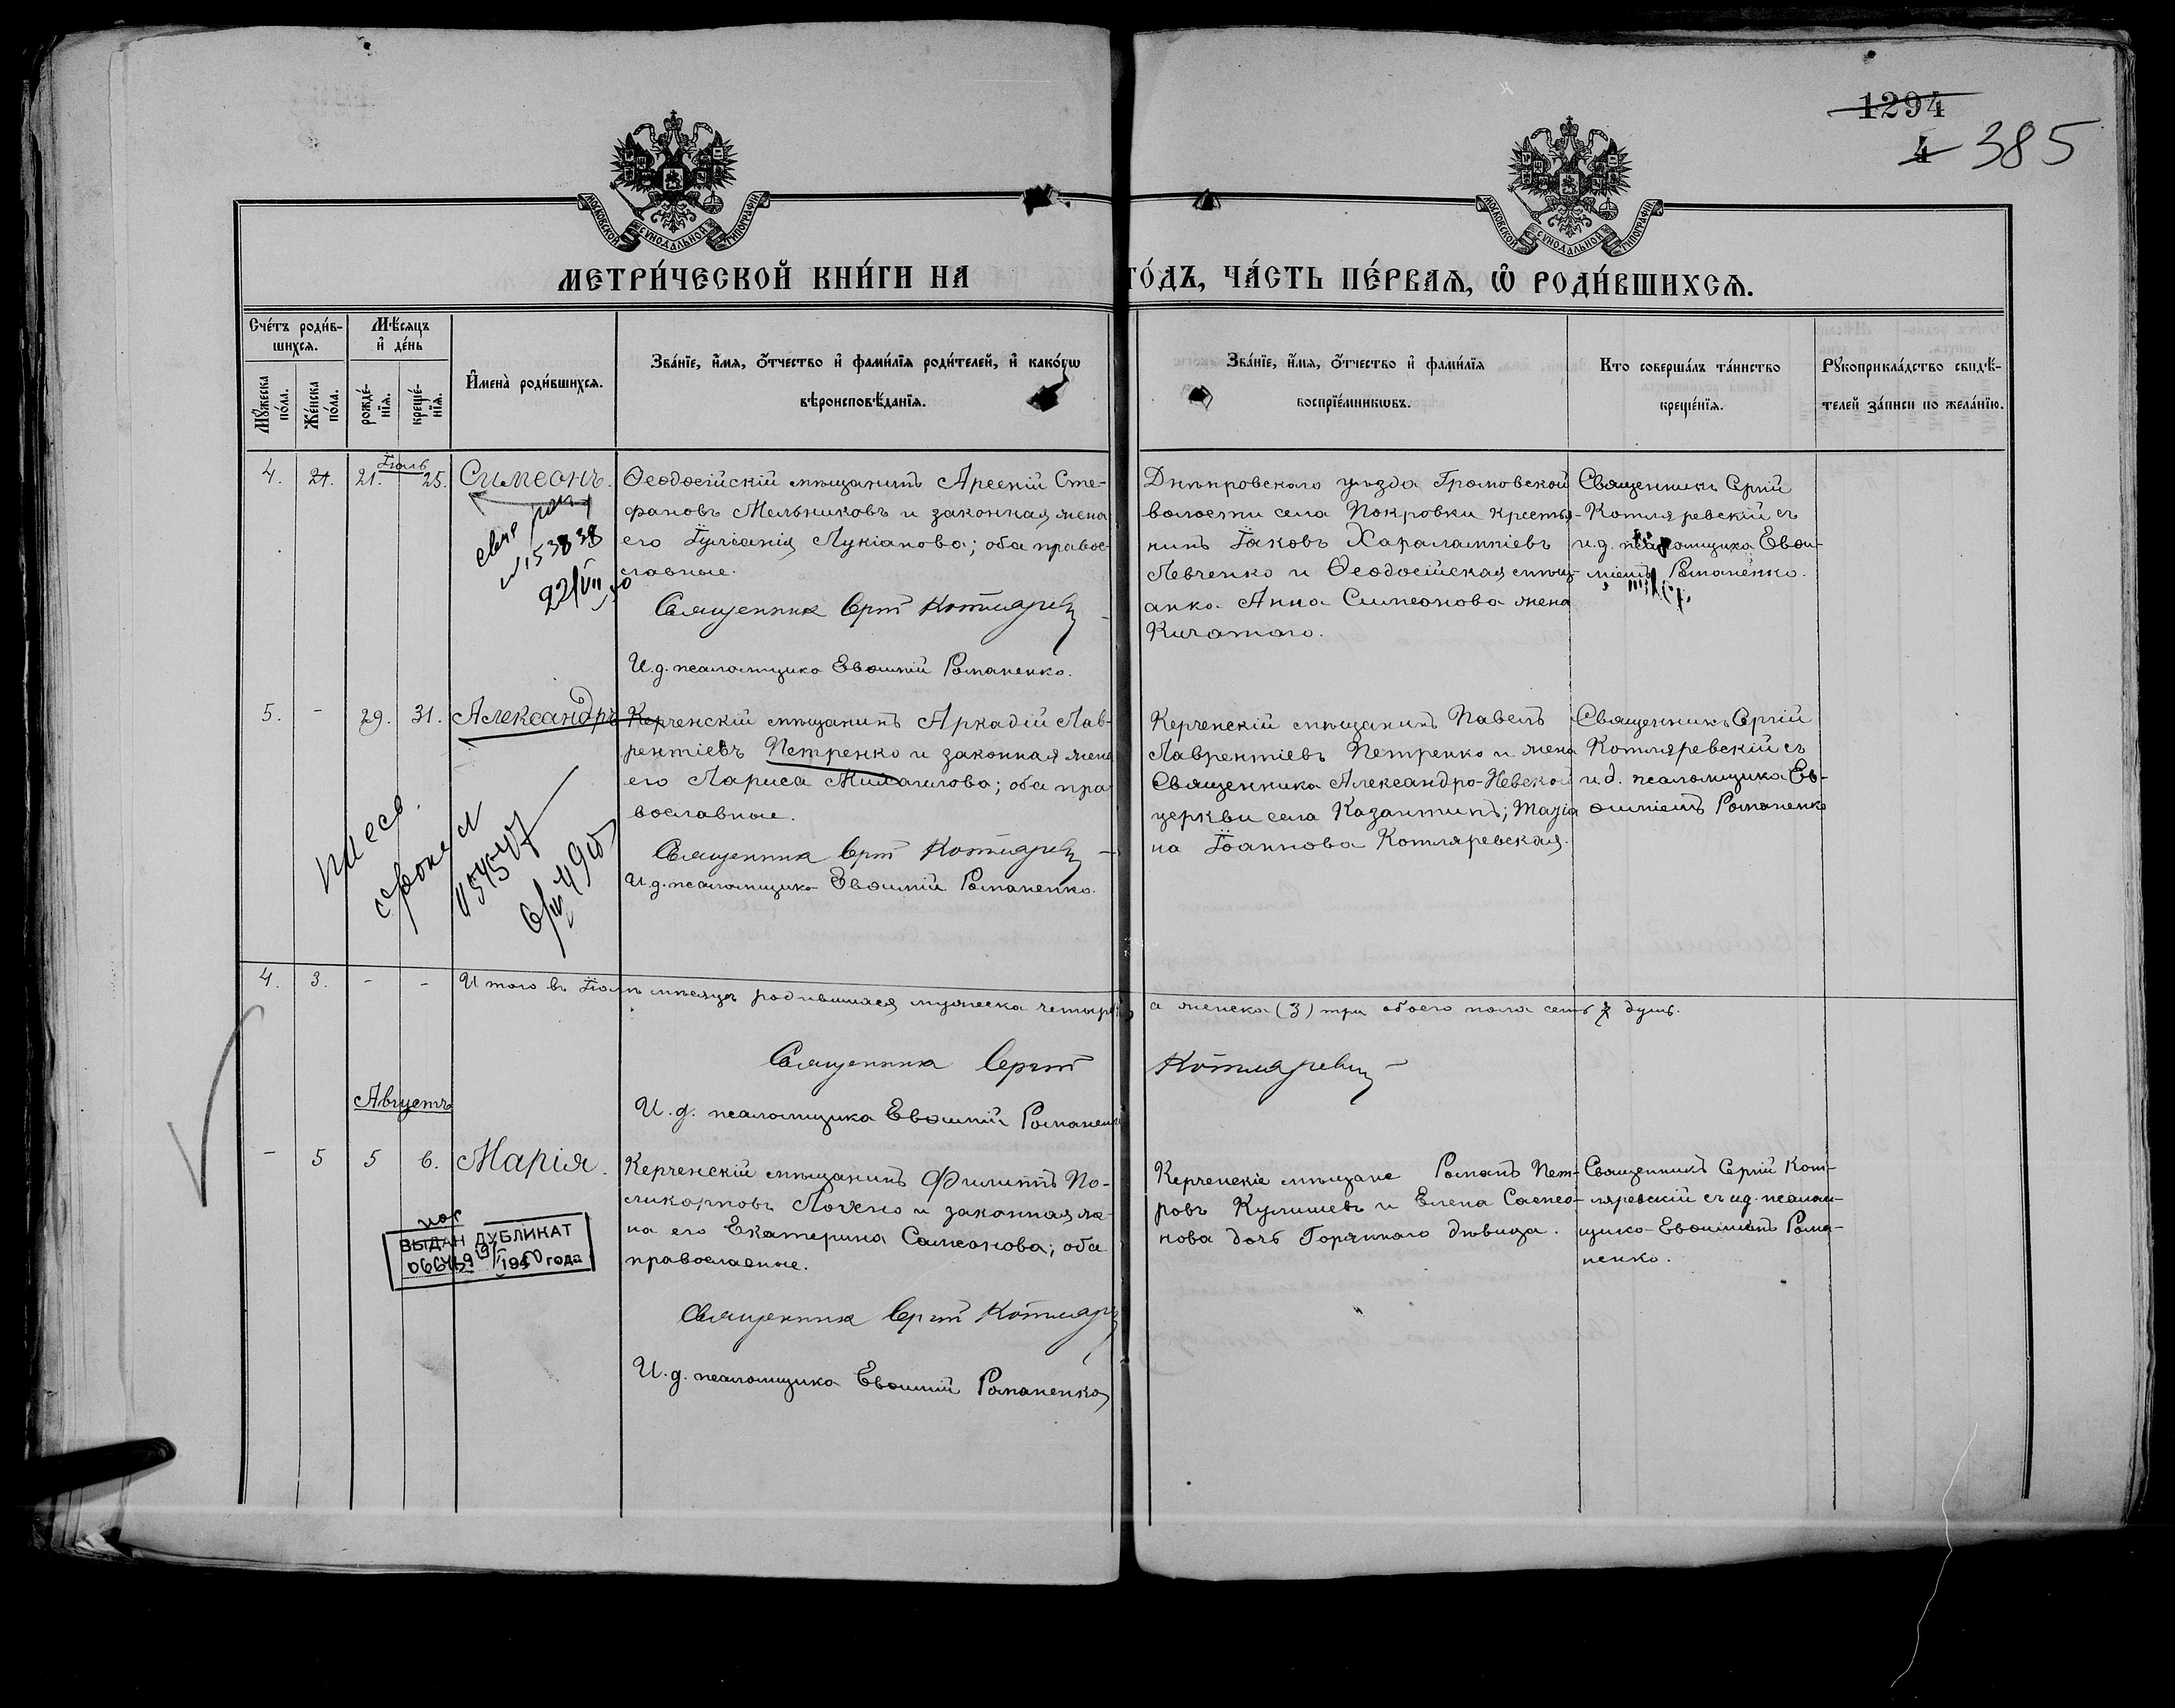 1294
4 385
МОСКОВСКОЙ СѴНОДАЛЬНОЙ ТИПОГРАФІИ
МОСКОВСКОЙ СѴНОДАЛЬНОЙ ТИПОГРАФІИ
МЕТРИ́ЧЕСКОЙ КНИ́ГИ НА ГО́ДЪ, ЧА́СТЬ ПЕ́РВАЯ, Ѡ҆ РОДИ́ВШИХСЯ.
Сче́тъ роди́в-
шихся.
Мꙋ́жеска
по́ла.
Же́нска
по́ла.
Мѣ́сяцъ
и҆ де́нь
рожде́-
нїя.
креще́-
нїя.
И҆мена̀ роди́вшихся.
Зва́нїе, и҆́мя, ѻ҆́тчество и҆ фами́лїя роди́телей, и҆ како́гѡ
вѣроисповѣ́данїя.
Зва́нїе, и҆́мя, ѻ҆́тчество и҆ фами́лїя
воспрїе́мникѡвъ.
Кто соверша́лъ та́инство
креще́нїя.
Рꙋкоприкла́дство свидѣ́-
телей за́писи по жела́нїю.
Іюль
4. 21. 21. 25. Симеонъ.
Ѳеодосійскій мѣщанинъ Арсеній Сте-
фановъ Мельниковъ и законная жена
его Іуліанія Лукіанова; оба правос-
славные.
Священникъ Сергій Котляревскій
И.д. псаломщика Евѳимій Романенко.
Днѣпровскаго уѣзда Громовской
волости села Покровки крестья-
нинъ Іаковъ Харалампіевъ
Левченко и Ѳеодосійская мѣщ-
анка Анна Симеонова жена
Кичатаго.
Священникъ Сергій
Котляревскій съ
и.д. псаломщика Евѳи-
міемъ Романенко.
22/VII
5. - 29. 31. Александръ
Керченскій мѣщанинъ Аркадій Лав-
рентіевъ Петренко и законная жена
его Лариса Михаилова; оба пра-
вославные.
Священникъ Сергій Котляревскій
И.д. псаломщика Евѳимій Романенко.
Керченскій мѣщанинъ Павелъ
Лаврентіевъ Петренко и жена
Священника Александро-Невской
церкви села Казантипъ; Марія
на Іоаннова Котляревская.
Священникъ Сергій
Котляревскій съ
и.д. псаломщика Ев-
ѳиміемъ Романенко
4. 3. - - Итого въ Іюлѣ мѣсяцѣ родившихся мужеска четыре
а женска (3) три обоего пола семь 7 душъ.
Священникъ Сергій Котляревскій
И.д. псаломщика Евѳимій Романенко
Августъ
- 5 5 6. Марія.
Керченскій мѣщанинъ Филиппъ По-
ликарповъ и законная же-
на его Екатерина Самсонова; оба
православные.
Священникъ Сергій Котляр
И.д. псаломщика Евѳимій Романенко
Керченскіе мѣщане Романъ Пет-
ровъ Кулишевъ и Елена Самсо-
нова дочь дѣвица.
Священникъ Сергій Кот-
ляревскій съ и.д. псалом-
щика Евѳиміемъ Рома-
ненко.
ВЫДАН ДУБЛИКАТ
1950 года